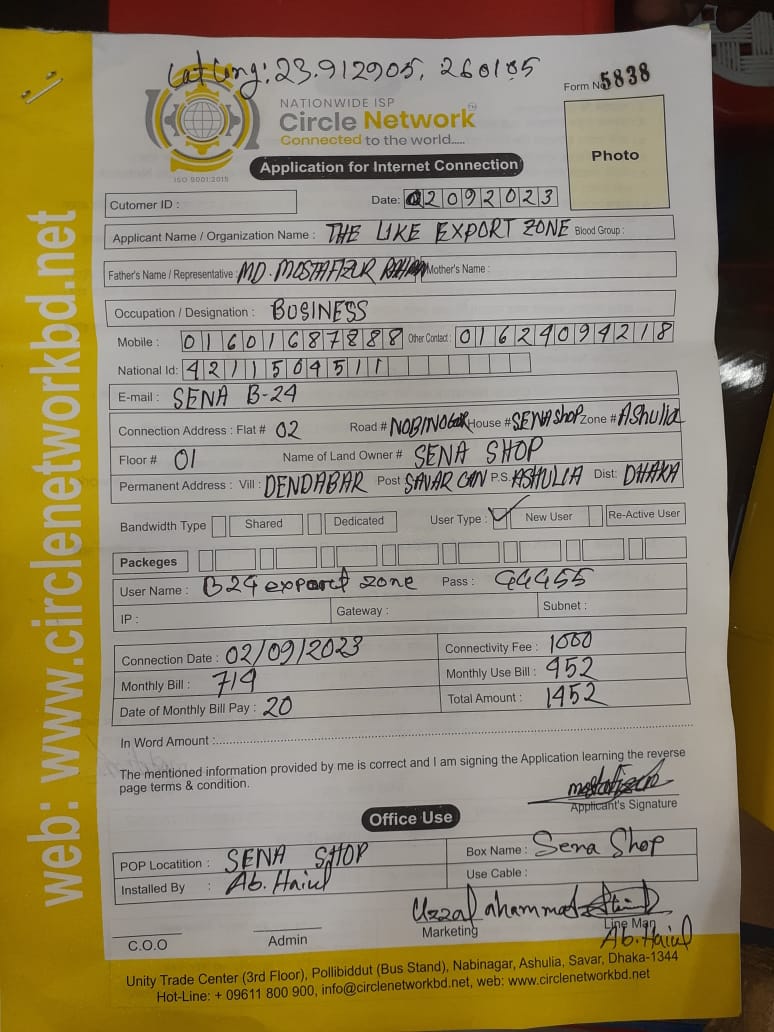 Lat Long: 23.912905, 260185
Form No 5838
NATIONWIDE ISP
Circle Network
Connected to the world.....
ISO 9001:2015
Application for Internet Connection
Photo
Cutomer ID :
Date: 02092023
Applicant Name / Organization Name : THE LIKE EXPORT ZONE Blood Group :
Father's Name / Representative : MD. MOSTAFIZUR Mother's Name :
Occupation / Designation : BUSINESS
Mobile : 01601687888 Other Contact : 01624094218
National Id: 4211504511
E-mail : SENA B-24
Connection Address : Flat # 02 Road # NOBINOGOR House # SENA Shop Zone # Ashulia
Floor # 01 Name of Land Owner # SENA SHOP
Permanent Address : Vill : DENDABAR Post SAVAR CAN P.S. ASHULIA Dist: DHAKA
Bandwidth Type Shared Dedicated User Type : New User Re-Active User
Packeges
User Name : B24 export zone Pass : 44455
IP : Gateway : Subnet :
Connection Date : 02/09/2023 Connectivity Fee : 1000
Monthly Bill : 714 Monthly Use Bill : 452
Date of Monthly Bill Pay : 20 Total Amount : 1452
In Word Amount :
The mentioned information provided by me is correct and I am signing the Application learning the reverse
page terms & condition.
Applicant's Signature
Office Use
POP Locatition : SENA SHOP Box Name : Sena Shop
Installed By : Ab. Haiul Use Cable :
Uzzal ahammad
C.O.O Admin Marketing Line Man
Ab. Haiul
Unity Trade Center (3rd Floor), Pollibiddut (Bus Stand), Nabinagar, Ashulia, Savar, Dhaka-1344
Hot-Line: + 09611 800 900, info@circlenetworkbd.net, web: www.circlenetworkbd.net
web: www.circlenetworkbd.net